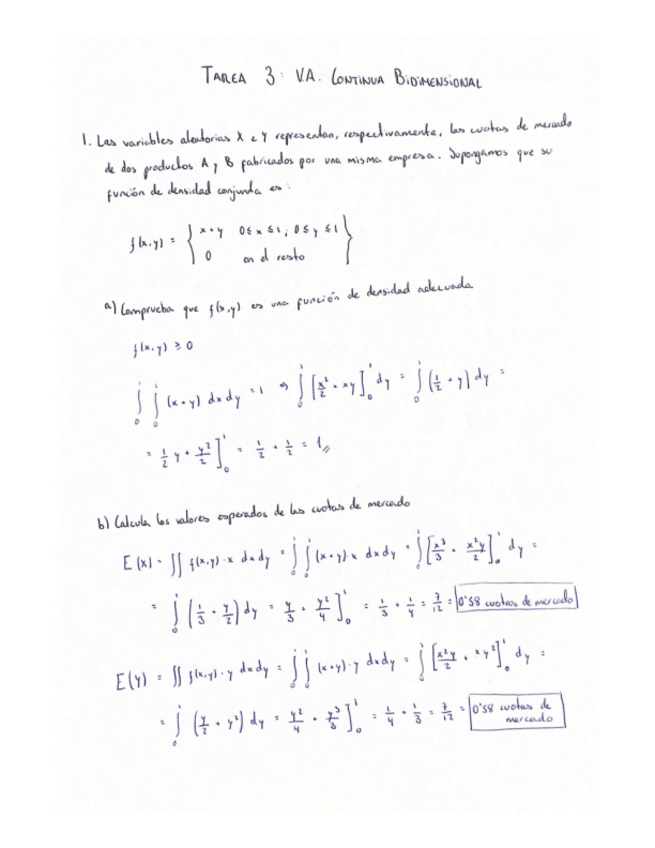 TAREA 3: V.A. CONTINUA BIDIMENSIONAL
1. Las variables aleatorias X e Y representan, respectivamente, las cuotas de mercado
de dos productos A y B fabricados por una misma empresa. Supongamos que su
función de densidad conjunta es:
f(x,y) = { x+y 0≤x≤1, 0≤y≤1
0 en el resto }
a) Comprueba que f(x,y) es una función de densidad adecuada
f(x,y) ≥ 0
∫₀¹ ∫₀¹ (x+y) dx dy = 1 ⇒ ∫₀¹ [x²/2 + xy]₀¹ dy = ∫₀¹ (1/2 + y) dy =
= 1/2 y + y²/2 ]₀¹ = 1/2 + 1/2 = 1,,
b) Calcula los valores esperados de las cuotas de mercado
E(x) = ∬ f(x,y)·x dx dy = ∫₀¹ ∫₀¹ (x+y)·x dx dy = ∫₀¹ [x³/3 + x²y/2]₀¹ dy =
= ∫₀¹ (1/3 + y/2) dy = y/3 + y²/4 ]₀¹ = 1/3 + 1/4 = 7/12 = 0'58 cuotas de mercado
E(y) = ∬ f(x,y)·y dx dy = ∫₀¹ ∫₀¹ (x+y)·y dx dy = ∫₀¹ [x²y/2 + xy²]₀¹ dy =
= ∫₀¹ (y/2 + y²) dy = y²/4 + y³/3 ]₀¹ = 1/4 + 1/3 = 7/12 = 0'58 cuotas de
mercado